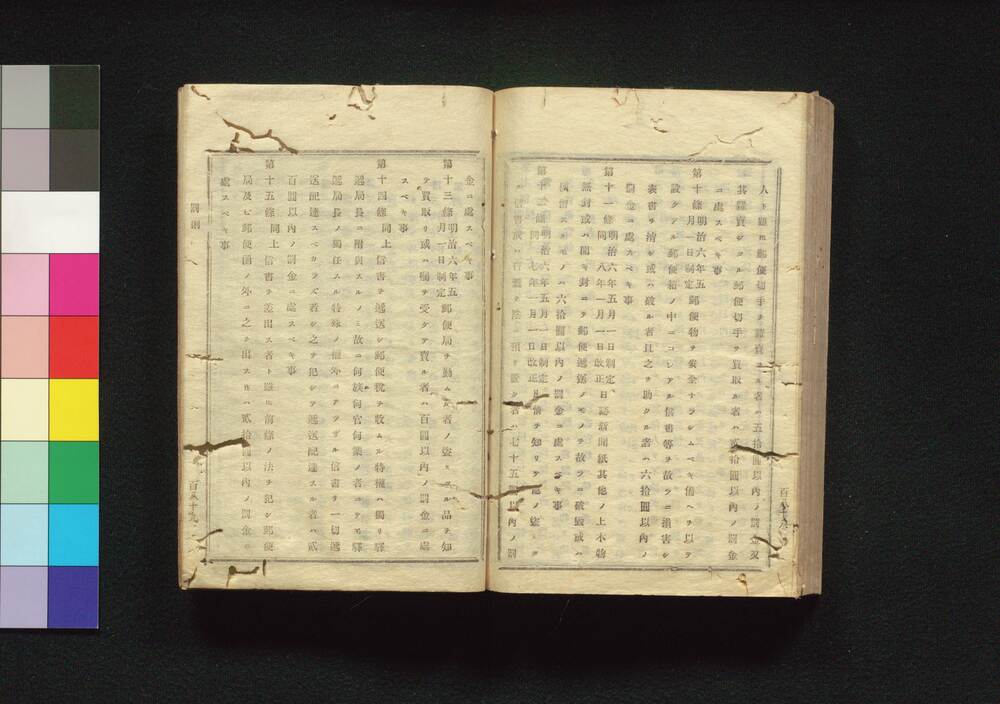 人ト雖𪜈郵便切手ヲ贋賣スル者ハ五拾圓以內ノ罰金又
其贋賣シタル郵便切手ヲ買取ル者ハ貳拾圓以內ノ罰金
ニ處スベキ事
第十條明治六年五月一日制定郵便物ヲ安全ナラシムベキ備ヘヲ以テ
設クアル郵便箱ノ中ニコレアル信書等ヲ故ラニ損害シ
表書ヲ汚シ或ハ破ル者且之ヲ助クル者ハ六拾圓以內ノ
罰金ニ處スベキ事
第十一條明治六年五月一日制定同八年一月一日改正日誌新聞紙其他ノ上木物
無封或ハ開キ封ニテ郵便遞送ノモノヲ故ラニ破毀或ハ
損害スルモノハ六拾圓以內ノ罰金ニ處スベキ事
第十二條明治六年五月一日制定同七年一月一日改正情ヲ知リテ
信書或ハ 七十五圓以內ノ罰
百五十九
金ニ處スベキ事
第十三條明治六年五月一日制定郵便局ヲ勤ムル者ノ盜ミタル品ヲ知
テ買取リ或ハ囑ヲ受ケテ賣ル者ハ百圓以內ノ罰金ニ處
スベキ事
第十四條同上信書ヲ遞送シ郵便稅ヲ收ムル特權ハ獨リ驛
遞局長ニ附與スルノミ故ニ何族何官何業ノ者ニテモ驛
遞局長ノ獨任スル特殊ノ權外ニアラザル信書ヲ一切遞
送配達スベカラズ若シ之ヲ犯シテ遞送配達スル者ハ貳
百圓以內ノ罰金ニ處スベキ事
第十五條同上信書ヲ差出ス者ト雖𪜈前條ノ法ヲ犯シ郵便
局及ビ郵便函ノ外ニ之ヲ出スルハ貳拾圓以內ノ罰金ニ
處スベキ事
罰則
百五十九